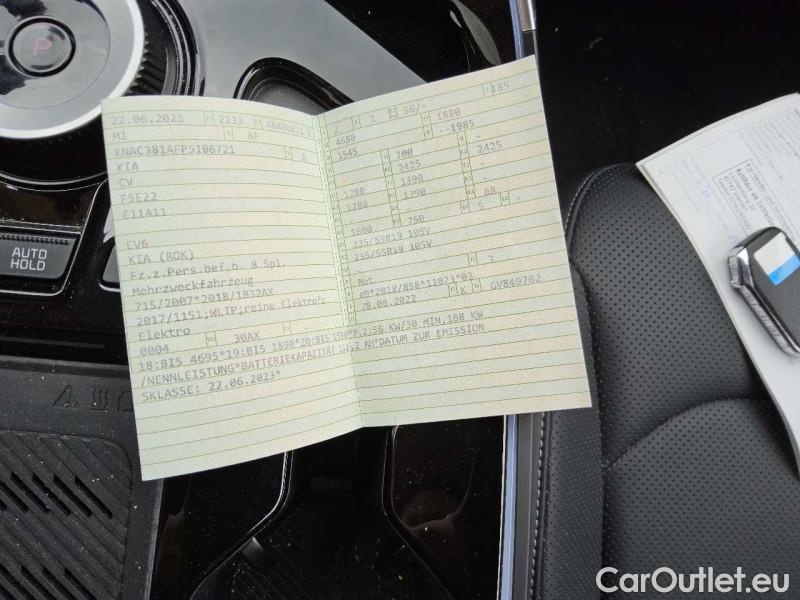 P
AUTO
HOLD
22.06.2023 2233
M1 AF
KNAC381AFP5106721
KIA
CV
F5E22
E11A11
EV6
KIA (ROK)
Fz.z.Pers.bef.b. 8 Spl.
Mehrzweckfahrzeug
715/2007*2018/1832AX
2017/1151;WLTP;reine Elektrof;
Elektro
0004 30AX
2 1 56/- 185
4680 1880
1545 --1985
100 -
2425 2425
1280 1390 -
1280 1390 -
68
1600 750 5 -
235/55R19 105V
235/55R19 105V
-
Rot 3
e9*2018/858*11073*03
28.06.2022 K GV849702
18:BIS 4695*19:BIS 1890*20:BIS P.2:56 KW/30 MIN,168 KW
/NENNLEISTUNG*BATTERIEKAPAZITÄT AH*DATUM ZUR EMISSION
SKLASSE: 22.06.2023*
CarOutlet.eu